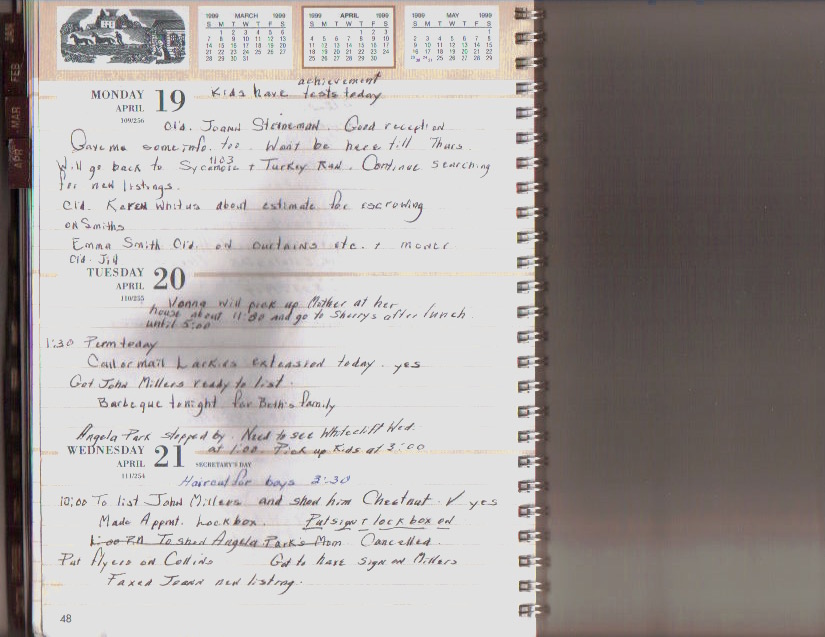 1999 MARCH 1999
S M T W T F S
1 2 3 4 5 6
7 8 9 10 11 12 13
14 15 16 17 18 19 20
21 22 23 24 25 26 27
28 29 30 31
1999 APRIL 1999
S M T W T F S
1 2 3
4 5 6 7 8 9 10
11 12 13 14 15 16 17
18 19 20 21 22 23 24
25 26 27 28 29 30
1999 MAY 1999
S M T W T F S
1
2 3 4 5 6 7 8
9 10 11 12 13 14 15
16 17 18 19 20 21 22
23 24 25 26 27 28 29
JAN
FEB
MAR
APR
achievement
MONDAY 19 Kids have tests today
APRIL
109/256
Cld. Joann Steineman. Good reception
Gave me some info. too. Wont be here till Thurs.
1103
Will go back to Sycamore + Turkey Run. Continue searching
for new listings.
Cld. Karen Whitus about estimate for escrowing
on Smiths
Emma Smith Cld. on curtains etc. +
Cld. Jill
TUESDAY 20
APRIL
110/255
Vonna will pick up Mother at her
house about 11:30 and go to Sherrys after lunch
until 5:00
1:30 Perm today
Call or mail Larkins extension today. yes
Got John Millers ready to list.
Barbeque tonight for Beth's family
Angela Park stopped by. Need to see Whitecliff Wed.
at 1:00. Pick up Kids at 3:00
WEDNESDAY 21
APRIL SECRETARY'S DAY
111/254
Haircut for boys 3:30
10:00 To list John Millers and show him Chestnut. ✓ yes
Made Appmt. Lockbox. Put sign + lock box on
1:00 P.M. To show Angela Park's Mom Cancelled.
Put flyers on Collins Got to have sign on Millers
Faxed Joann new listing.
48